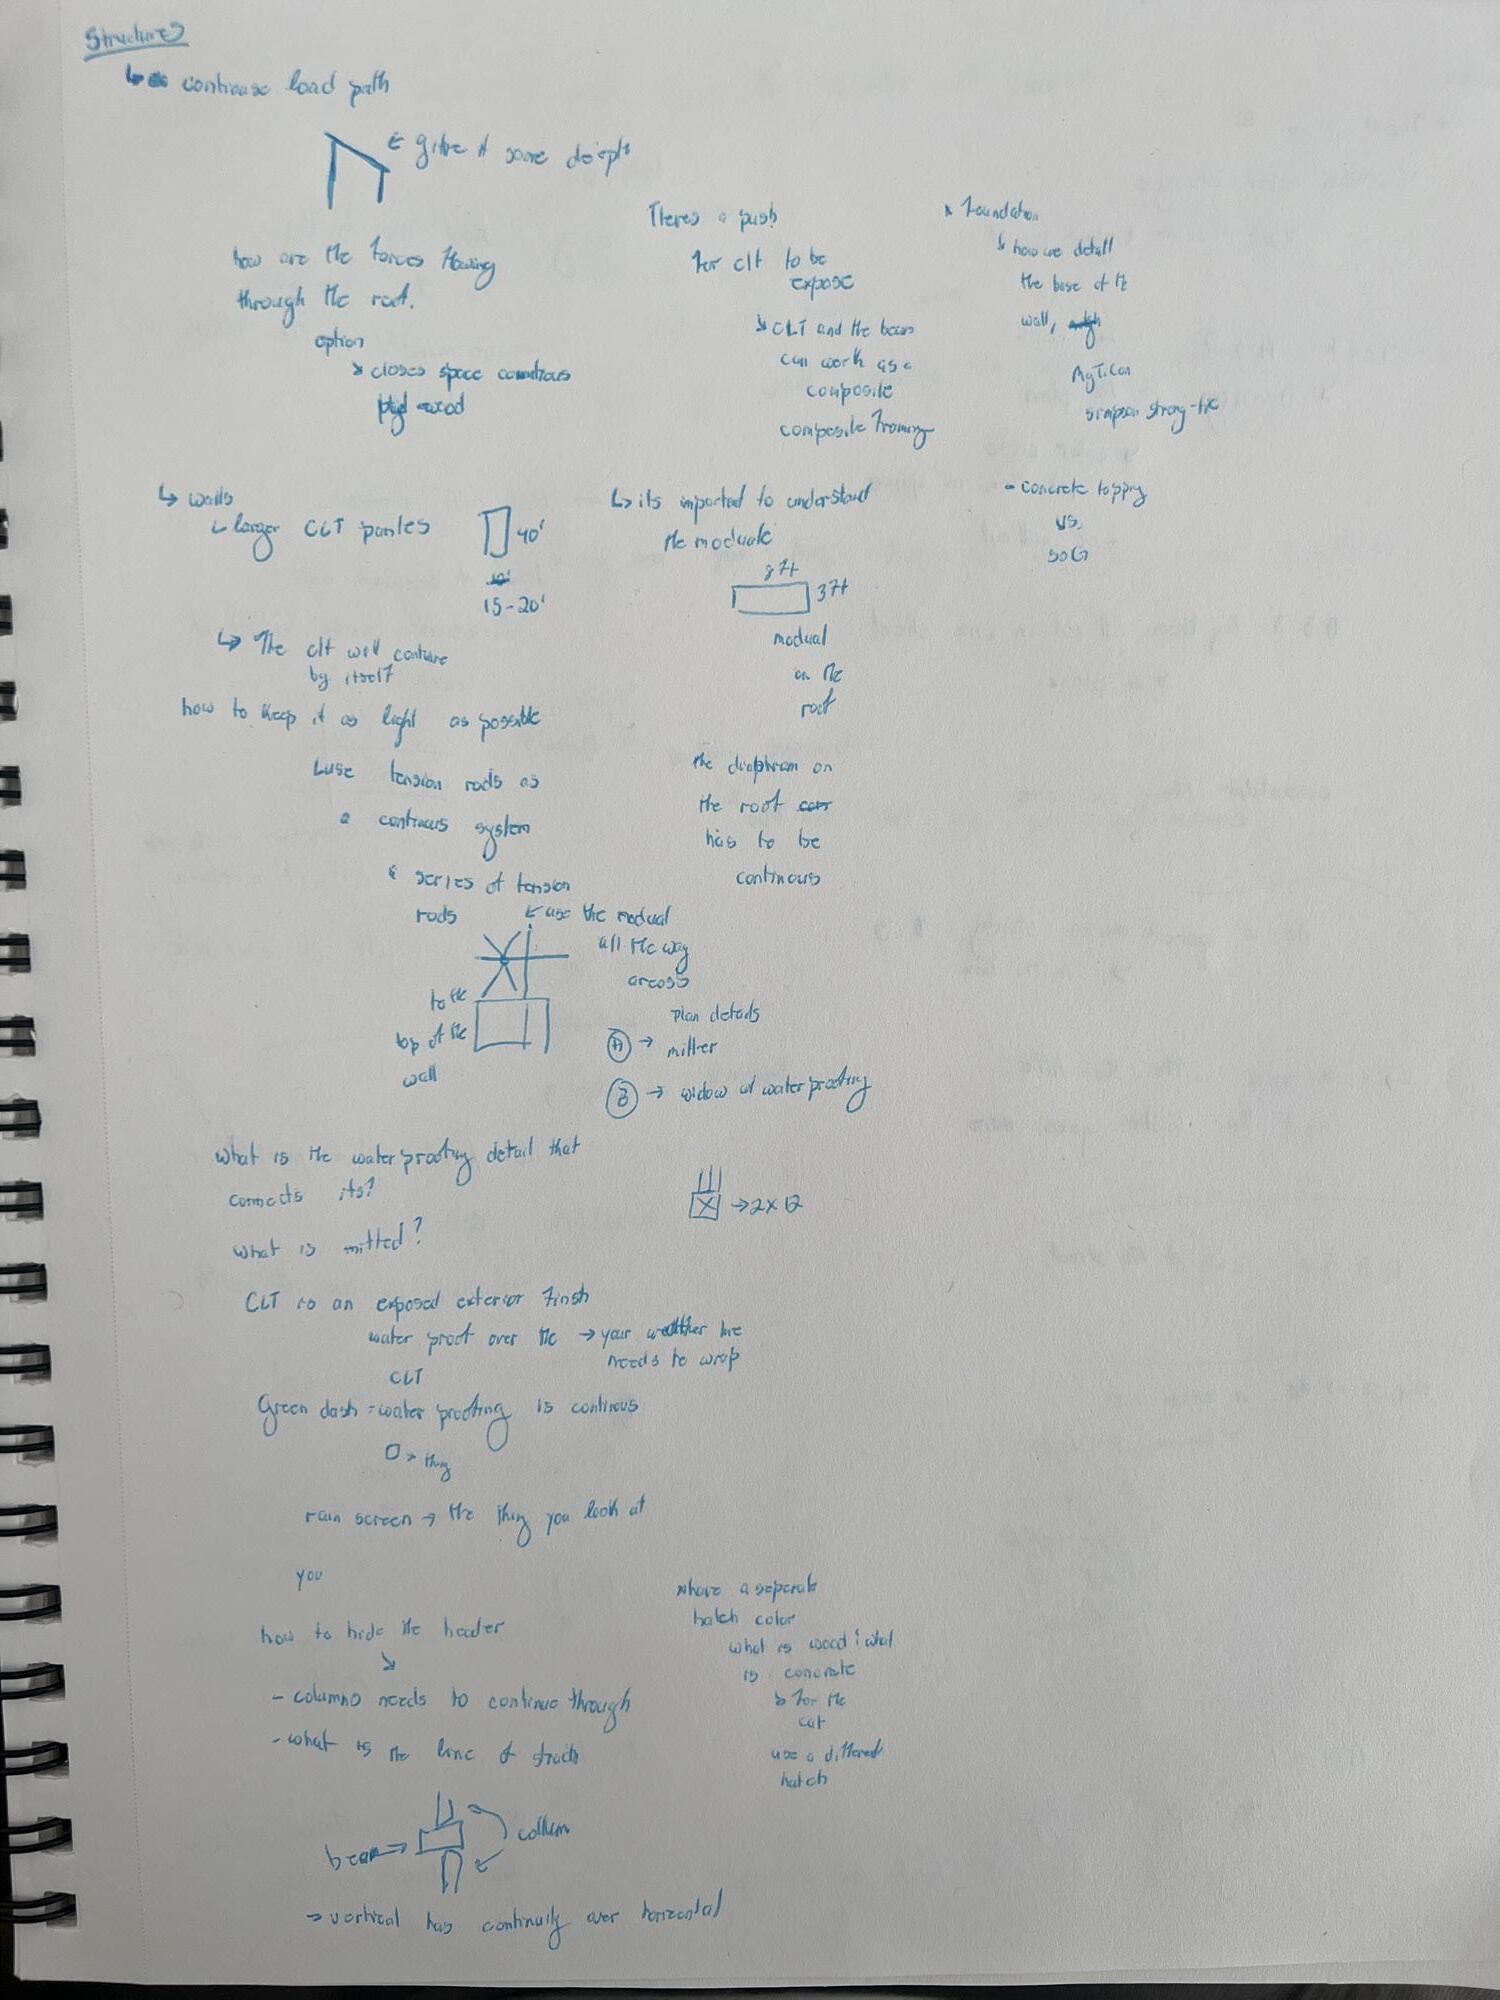 Structures
↳ continuse load path
← give it some deepth
how are the forces flowing
through the roof.
option
↘ closes space conditions
plyd wood
Theres a push
for clt to be
expose
↘ CLT and the beam
can work as a
composite
composite framing
Foundation
↘ how we detail
the base of the
wall,
simpson strong-tie
- concrete topping
vs.
SOG
↳ walls
↳ larger CLT panles
40'
15-20'
↳ The clt will continue
by itself
how to keep it as light as possible
↳ use tension rods as
a continous system
series of tension
rods
to the
top of the
wall
↳ its imported to understand
the moduale
8ft
3ft
modual
on the
roof
the diaphram on
the roof
has to be
continous
← use the modual
all the way
arcoss
plan details
A → mitter
B → widow w/ waterproofing
what is the waterproofing detail that
connects its?
what is mitted?
→ 2x12
CLT is an exposed exterior finsh
water proof over the
CLT
→ your weather line
needs to wrap
Green dash = water proofing is continous
→ thing
rain screen → the thing you look at
you
how to hide the header
- columns needs to continue through
- what is the line of
beam →
collum
→ vertical has continuity over horizontal
have a seperate
hatch color
what is wood & what
is concrete
↳ for the
cut
use a different
hatch